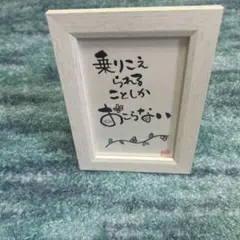 乗りこえ
られる
ことしか
おこらない